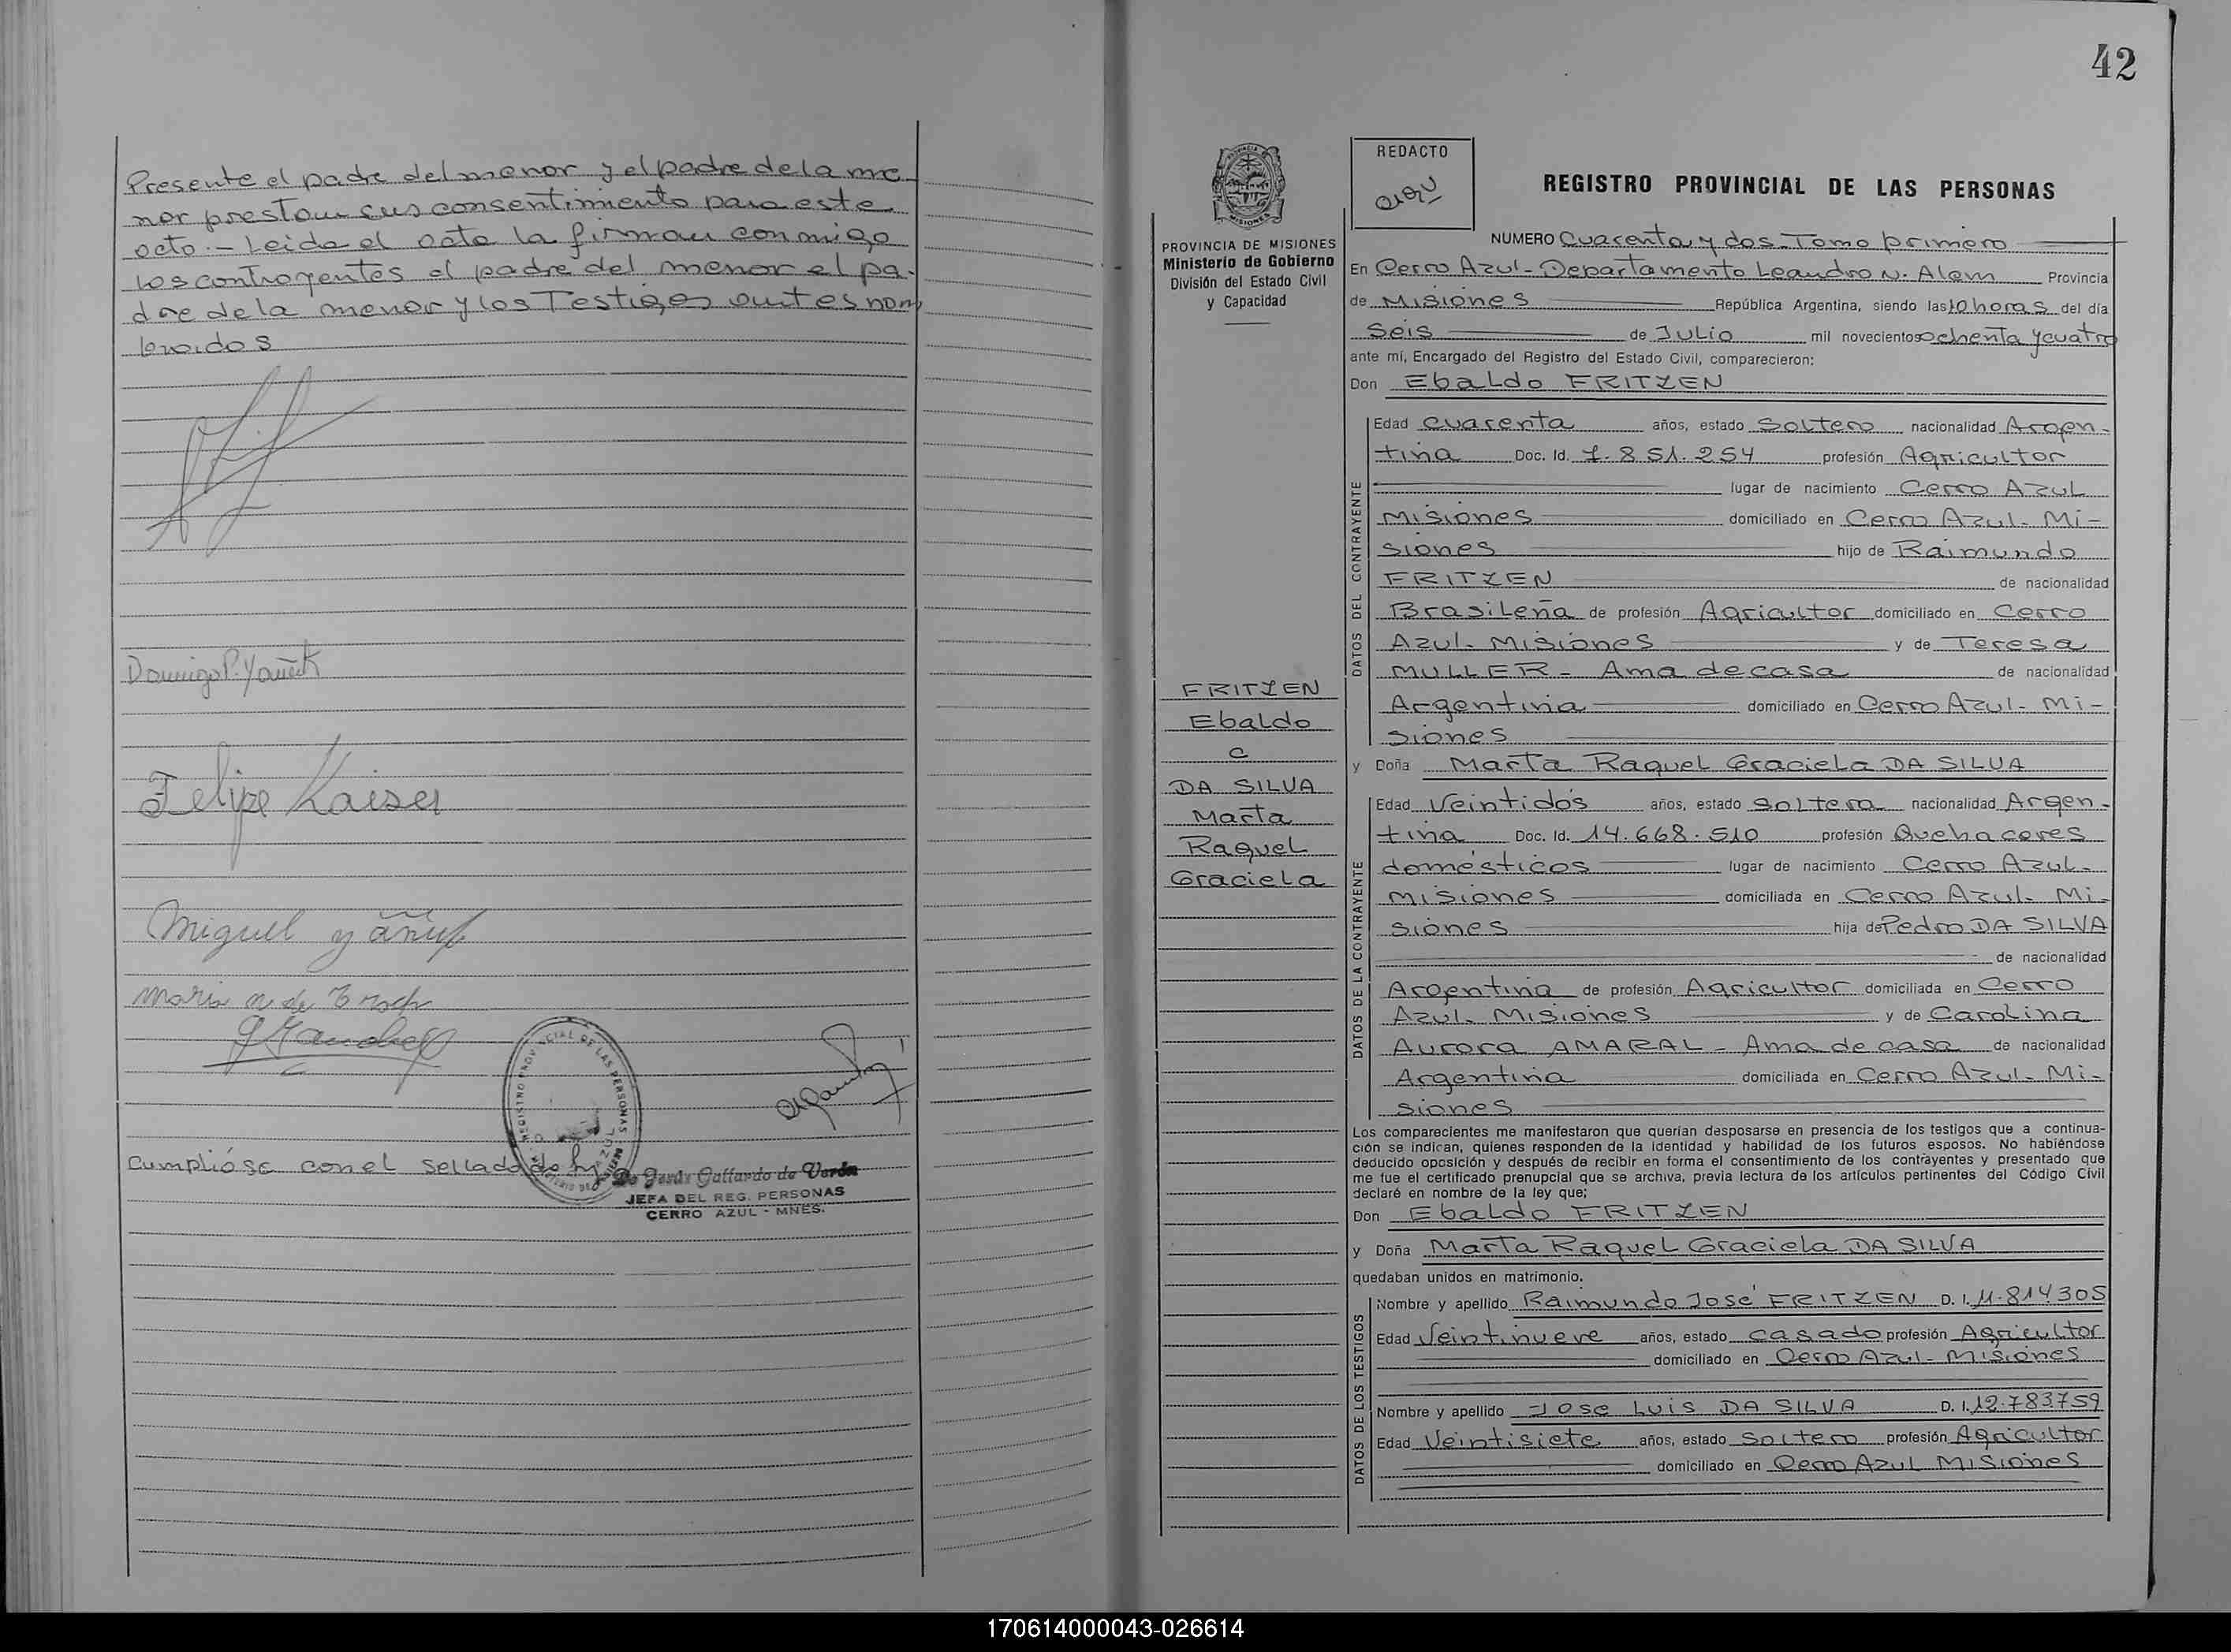 Presente el padre del menor y el padre de la me
nor prestan sus consentimiento para este
acto.- Leida el acta la firman conmigo
los contrayentes el padre del menor el pa-
dre de la menor y los Testigos antes nom
brados
Felipe Kaiser
Miguel
Maria de
Cumplióse con el sellado de
REGISTRO PROVINCIAL DE LAS PERSONAS
Gallardo de Verón
JEFA DEL REG. PERSONAS
CERRO AZUL - MNES.
42
PROVINCIA DE MISIONES
Ministerio de Gobierno
División del Estado Civil
y Capacidad
FRITZEN
Ebaldo
C
DA SILVA
Marta
Raquel
Graciela
REDACTO
REGISTRO PROVINCIAL DE LAS PERSONAS
NUMERO Cuarenta y dos-Tomo primero
En Cerro Azul-Departamento Leandro N. Alem Provincia
de Misiones República Argentina, siendo las 10 horas del día
Seis de Julio mil novecientos ochenta y cuatro
ante mí, Encargado del Registro del Estado Civil, comparecieron:
Don Ebaldo FRITZEN
DATOS DEL CONTRAYENTE
Edad cuarenta años, estado Soltero nacionalidad Argen-
tina Doc. Id. 7.851.254 profesión Agricultor
lugar de nacimiento Cerro Azul
Misiones domiciliado en Cerro Azul- Mi-
siones hijo de Raimundo
FRITZEN de nacionalidad
Brasileña de profesión Agricultor domiciliado en Cerro
Azul- Misiones y de Teresa
MULLER- Ama de casa de nacionalidad
Argentina domiciliado en Cerro Azul- Mi-
siones
y Doña Marta Raquel Graciela DA SILVA
DATOS DE LA CONTRAYENTE
Edad Veintidós años, estado Soltera nacionalidad Argen-
tina Doc. Id. 14.668.510 profesión Quehaceres
domésticos lugar de nacimiento Cerro Azul-
Misiones domiciliada en Cerro Azul- Mi-
siones hija de Pedro DA SILVA
de nacionalidad
Argentina de profesión Agricultor domiciliada en Cerro
Azul- Misiones y de Carolina
Aurora AMARAL- Ama de casa de nacionalidad
Argentina domiciliada en Cerro Azul- Mi-
siones
Los comparecientes me manifestaron que querían desposarse en presencia de los testigos que a continua-
ción se indican, quienes responden de la identidad y habilidad de los futuros esposos. No habiéndose
deducido oposición y después de recibir en forma el consentimiento de los contrayentes y presentado que
me fue el certificado prenupcial que se archiva, previa lectura de los artículos pertinentes del Código Civil
declaré en nombre de la ley que;
Don Ebaldo FRITZEN
y Doña Marta Raquel Graciela DA SILVA
quedaban unidos en matrimonio.
DATOS DE LOS TESTIGOS
Nombre y apellido Raimundo José FRITZEN D. I. 11.814305
Edad Veintinueve años, estado casado profesión Agricultor
domiciliado en Cerro Azul- Misiones
Nombre y apellido Jose Luis DA SILVA D. I. 12.783759
Edad Veintisiete años, estado Soltero profesión Agricultor
domiciliado en Cerro Azul Misiones
170614000043-026614